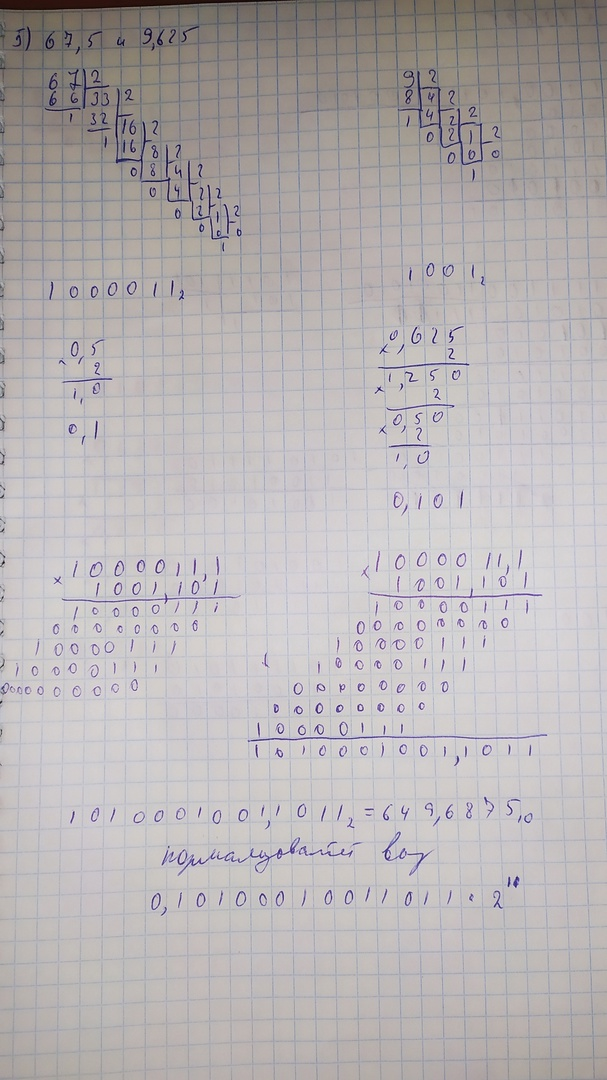 5) 67,5 и 9,625
67 2
66 33 2
1 32 16 2
1 16 8 2
0 8 4 2
0 4 2 2
0 2 1 2
0 0 0
1
9 2
8 4 2
1 4 2 2
0 2 1 2
0 0 0
1
1000011₂
1001₂
0,5
× 2
1,0
0,1
× 0,625
2
× 1,250
2
× 0,50
2
1,0
0,101
× 1000011,1
1001,101
10000111
00000000
10000111
10000111
0000000000
× 1000011,1
1001,101
10000111
00000000
10000111
10000111
00000000
00000000
10000111
1010001001,1011
1010001001,1011₂ = 649,6875₁₀
0,10100010011011 · 2¹⁰